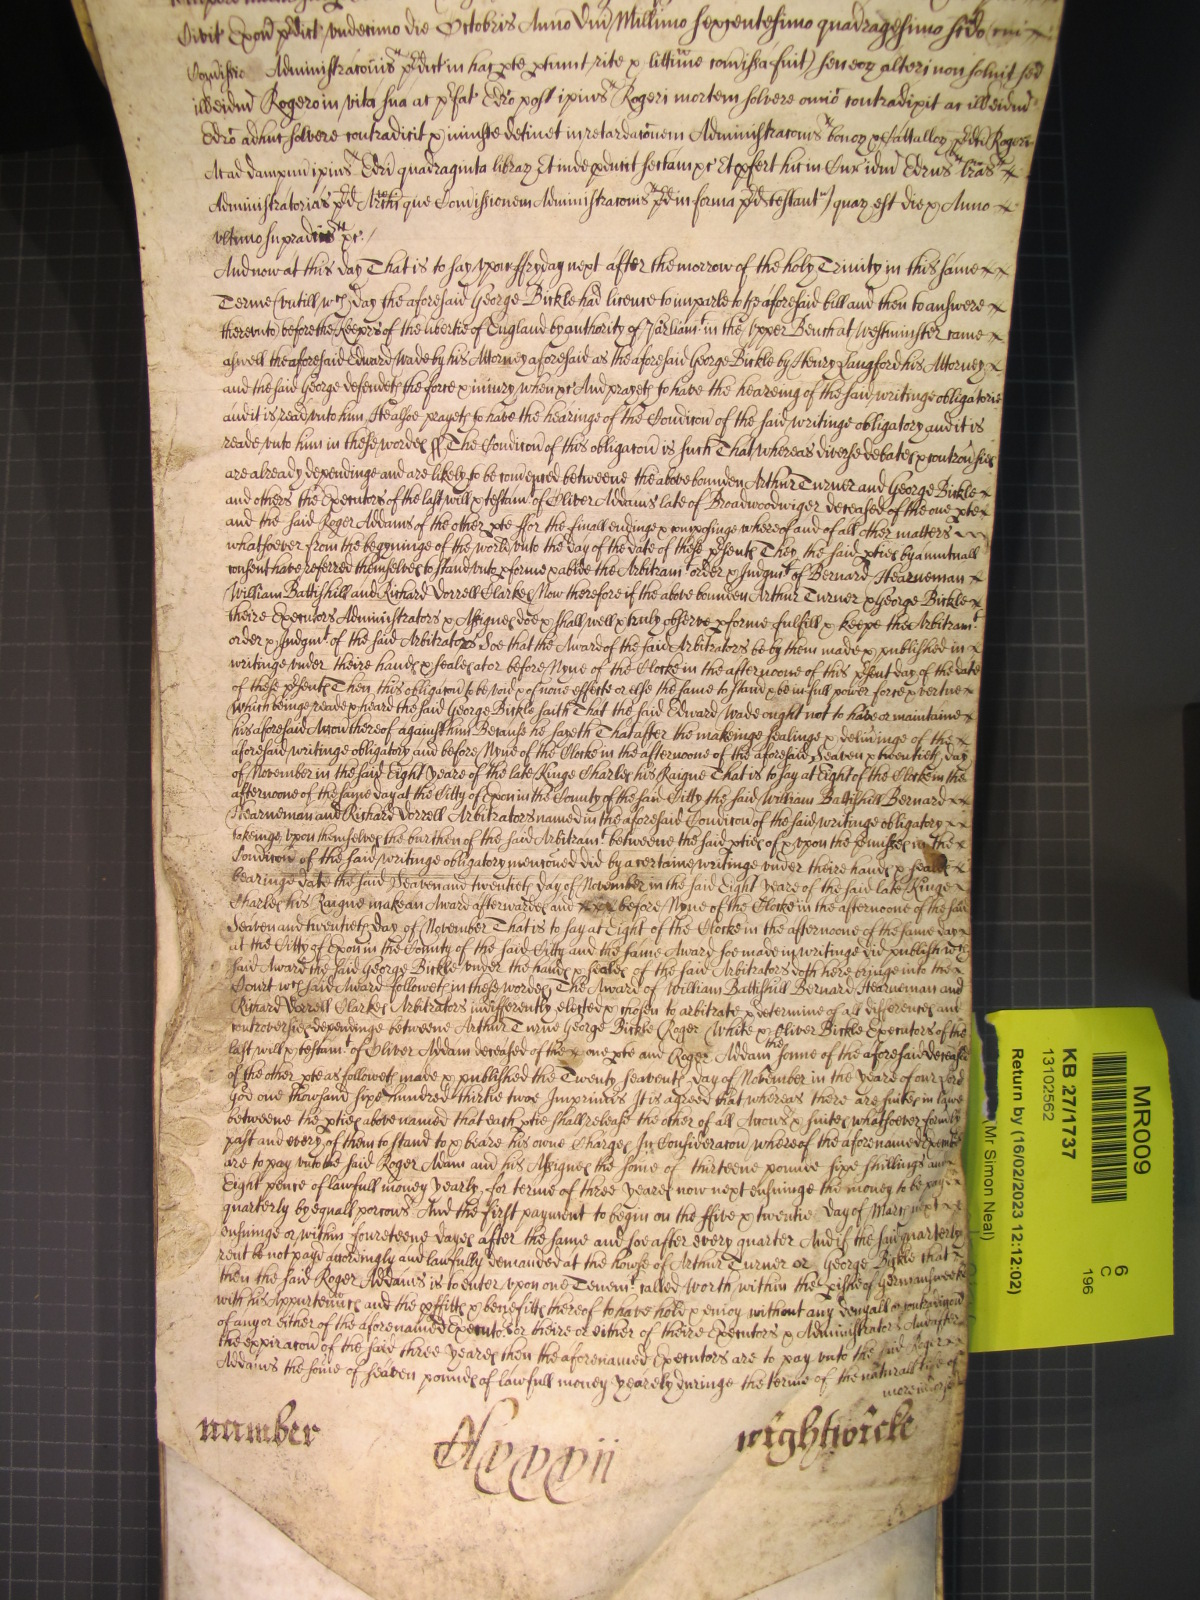 Civit Exon pᵈdict vndecimo die Octobris Anno Dm̄ Millimo sexcentesimo quadragesimo scdo cui
Comissio Administracoīs pᵈdict in hac pte ptunt rite & littime comissa fuit) seu eoꝝ alteri non soluit sed
ill eidm̄ Rogero in vita sua ac pᵈfat Edro post ipius Rogeri mortem solvere omīo contradixit ac ill eidm̄
Edro adhuc solvere contradicit & iniuste detinet in retardacoem Administracois bonoꝝ & Catalloꝝ pᵈdci Rogeri
Ac ad dampnū ipius Edri quadraginta libraꝝ Et inde pducit sectam &c Et pfert hic in Cur idm̄ Edrus lr̄as
Administratorias pᵈd Archi que Comissionem Administracois pᵈd in forma pᵈd testant) quaꝝ est die & Anno
vltimo supradict &c /
And now at this day That is to say vpon ffryday next after the morrow of the holy Trinity in this same
Terme (vntill wᶜʰ day the aforesaid George Bickle had licence to imparle to the aforesaid bill and then to answere
therevnto) before the Keeps of the libertie of England by authority of Parliamᵗ in the Vpper Bench at Westminster came
aswell the aforesaid Edward Wade by his Attorney aforesaid as the aforesaid George Bickle by Henry Langford his Attorney
and the said George defendeth the force & iniury when &c And prayeth to have the heareing of the said writinge obligatorie
and it is read vnto him He alsoe prayeth to have the hearinge of the Condicon of the said writinge obligatory and it is
reade vnto him in these wordes ſſ The Condicon of this obligacon is such That whereas diverse debates & controusies
are already dependinge and are likely to be comenced betweene the above bounden Arthur Turner and George Bickle
and others the Executors of the last will & testamᵗ of Oliver Addams late of Broadwoodwiger deceased of the one pte
and the said Roger Addams of the other pte for the finall endinge & composinge whereof and of all other matters
whatsoever from the begyninge of the world vnto the day of the date of these pᵉsents They the said pties by a mutuall
consent have referred themselves to stand vnto pforme & abide the Arbitramᵗ order & Judgmᵗ of Bernard Hearneman
William Battishill and Richard Dorrell Clarkes Now therefore if the above bounden Arthur Turner & George Bickle
theire Executors Administrators & Assignes doe & shall well & truly observe pforme fulfill & keepe the Arbitramᵗ
order & Judgmᵗ of the said Arbitrators Soe that the Award of the said Arbitrators be by them made & published in
writinge vnder theire hands & seales at or before Nyne of the Clocke in the afternoone of this pᵉsent day of the date
of these pᵉsents Then this obligacon to be void & of none effecte or else the same to stand & be in full power force & vertue
Which beinge reade & heard the said George Bickle saith That the said Edward Wade ought not to have or maintaine
his aforesaid Accon thereof against him Because he sayeth That after the makeinge sealinge & deliuinge of the
aforesaid writinge obligatory and before Nyne of the Clocke in the afternoone of the aforesaid Seaven & twentieth day
of November in the said Eight yeare of the late Kinge Charles his Raigne That is to say at Eight of the Clocke in the
afternoone of the same day at the Citty of Exon in the County of the said Citty the said William Battishill Bernard
Hearneman and Richard Dorrell Arbitrators named in the aforesaid Condicon of the said writinge obligatory
takeinge vpon themselves the burthen of the said Arbitramᵗ betweene the said pties of & vpon the pmisses in the
Condicon of the said writinge obligatory mencioned did by a certaine writinge vnder theire hands & seales
bearinge date the said Seaven and twentieth day of November in the said Eight yeare of the said late Kinge
Charles his Raigne make an Award afterwardes and before Nyne of the Clocke in the afternoone of the said
Seaven and twentieth day of November That is to say at Eight of the Clocke in the afternoone of the same day
at the Citty of Exon in the County of the said Citty and the same Award soe made in writinge did publish wᶜʰ
said Award the said George Bickle vnder the hands & seales of the said Arbitrators doth here bringe into the
Court wᶜʰ said Award followeth in these wordes The Award of William Battishill Bernard Hearneman and
Richard Dorrell Clarkes Arbitrators indifferently elected & chosen to arbitrate & determine of all differences and
controversies dependinge betweene Arthur Turne George Bickle Roger White & Oliver Bickle Executors of the
last will & testamᵗ of Oliver Addam deceased of the one pte and Roger Addam the sonne of the aforesaid deceased
of the other pte as followeth made & published the Twenty seaventh day of November in the yeare of our Lord
god one thowsand sixe hundred thirtie twoe Imprimis It is agreed that whereas there are suites in lawe
betweene the pties above named that each ptie shall release the other of all Accons & suites whatsoever formly
past and every of them to stand to & beare his owne Charges In Consideracon whereof the aforenamed Executors
are to pay vnto the said Roger Adam and his Assignes the some of thirteene pounds sixe shillings and
Eight pence of lawfull money yearly for terme of three yeares now next ensuinge the money to be payd
quarterly by equall porcons And the first payment to begin on the ffive & twentie day of March next
ensuinge or within foureteene dayes after the same and soe after every quarter And if the said quarterly
rent be not payd accordingly and lawfully demanded at the howse of Arthur Turner or George Bickle that
then the said Roger Addams is to enter vpon one Tenemᵗ called Worth within the pishe of Germansweeke
with his Appurtenncs and the pffitts & benefitts thereof to have hold & enioy without any denyall or contradiccon
of any or either of the aforenamed Executors or theire or either of theire Executors & Administrators And after
the expiracon of the said three yeares then the aforenamed Executors are to pay vnto the said Roger
Addams the some of seaven pounds of lawfull money yearely duringe the terme of the naturall life of
more
number
Clxxxxii
wightwicke
MR009
6
C
196
KB 27/1737
13102562
Mr Simon Neal)
Return by (16/02/2023 12:12:02)